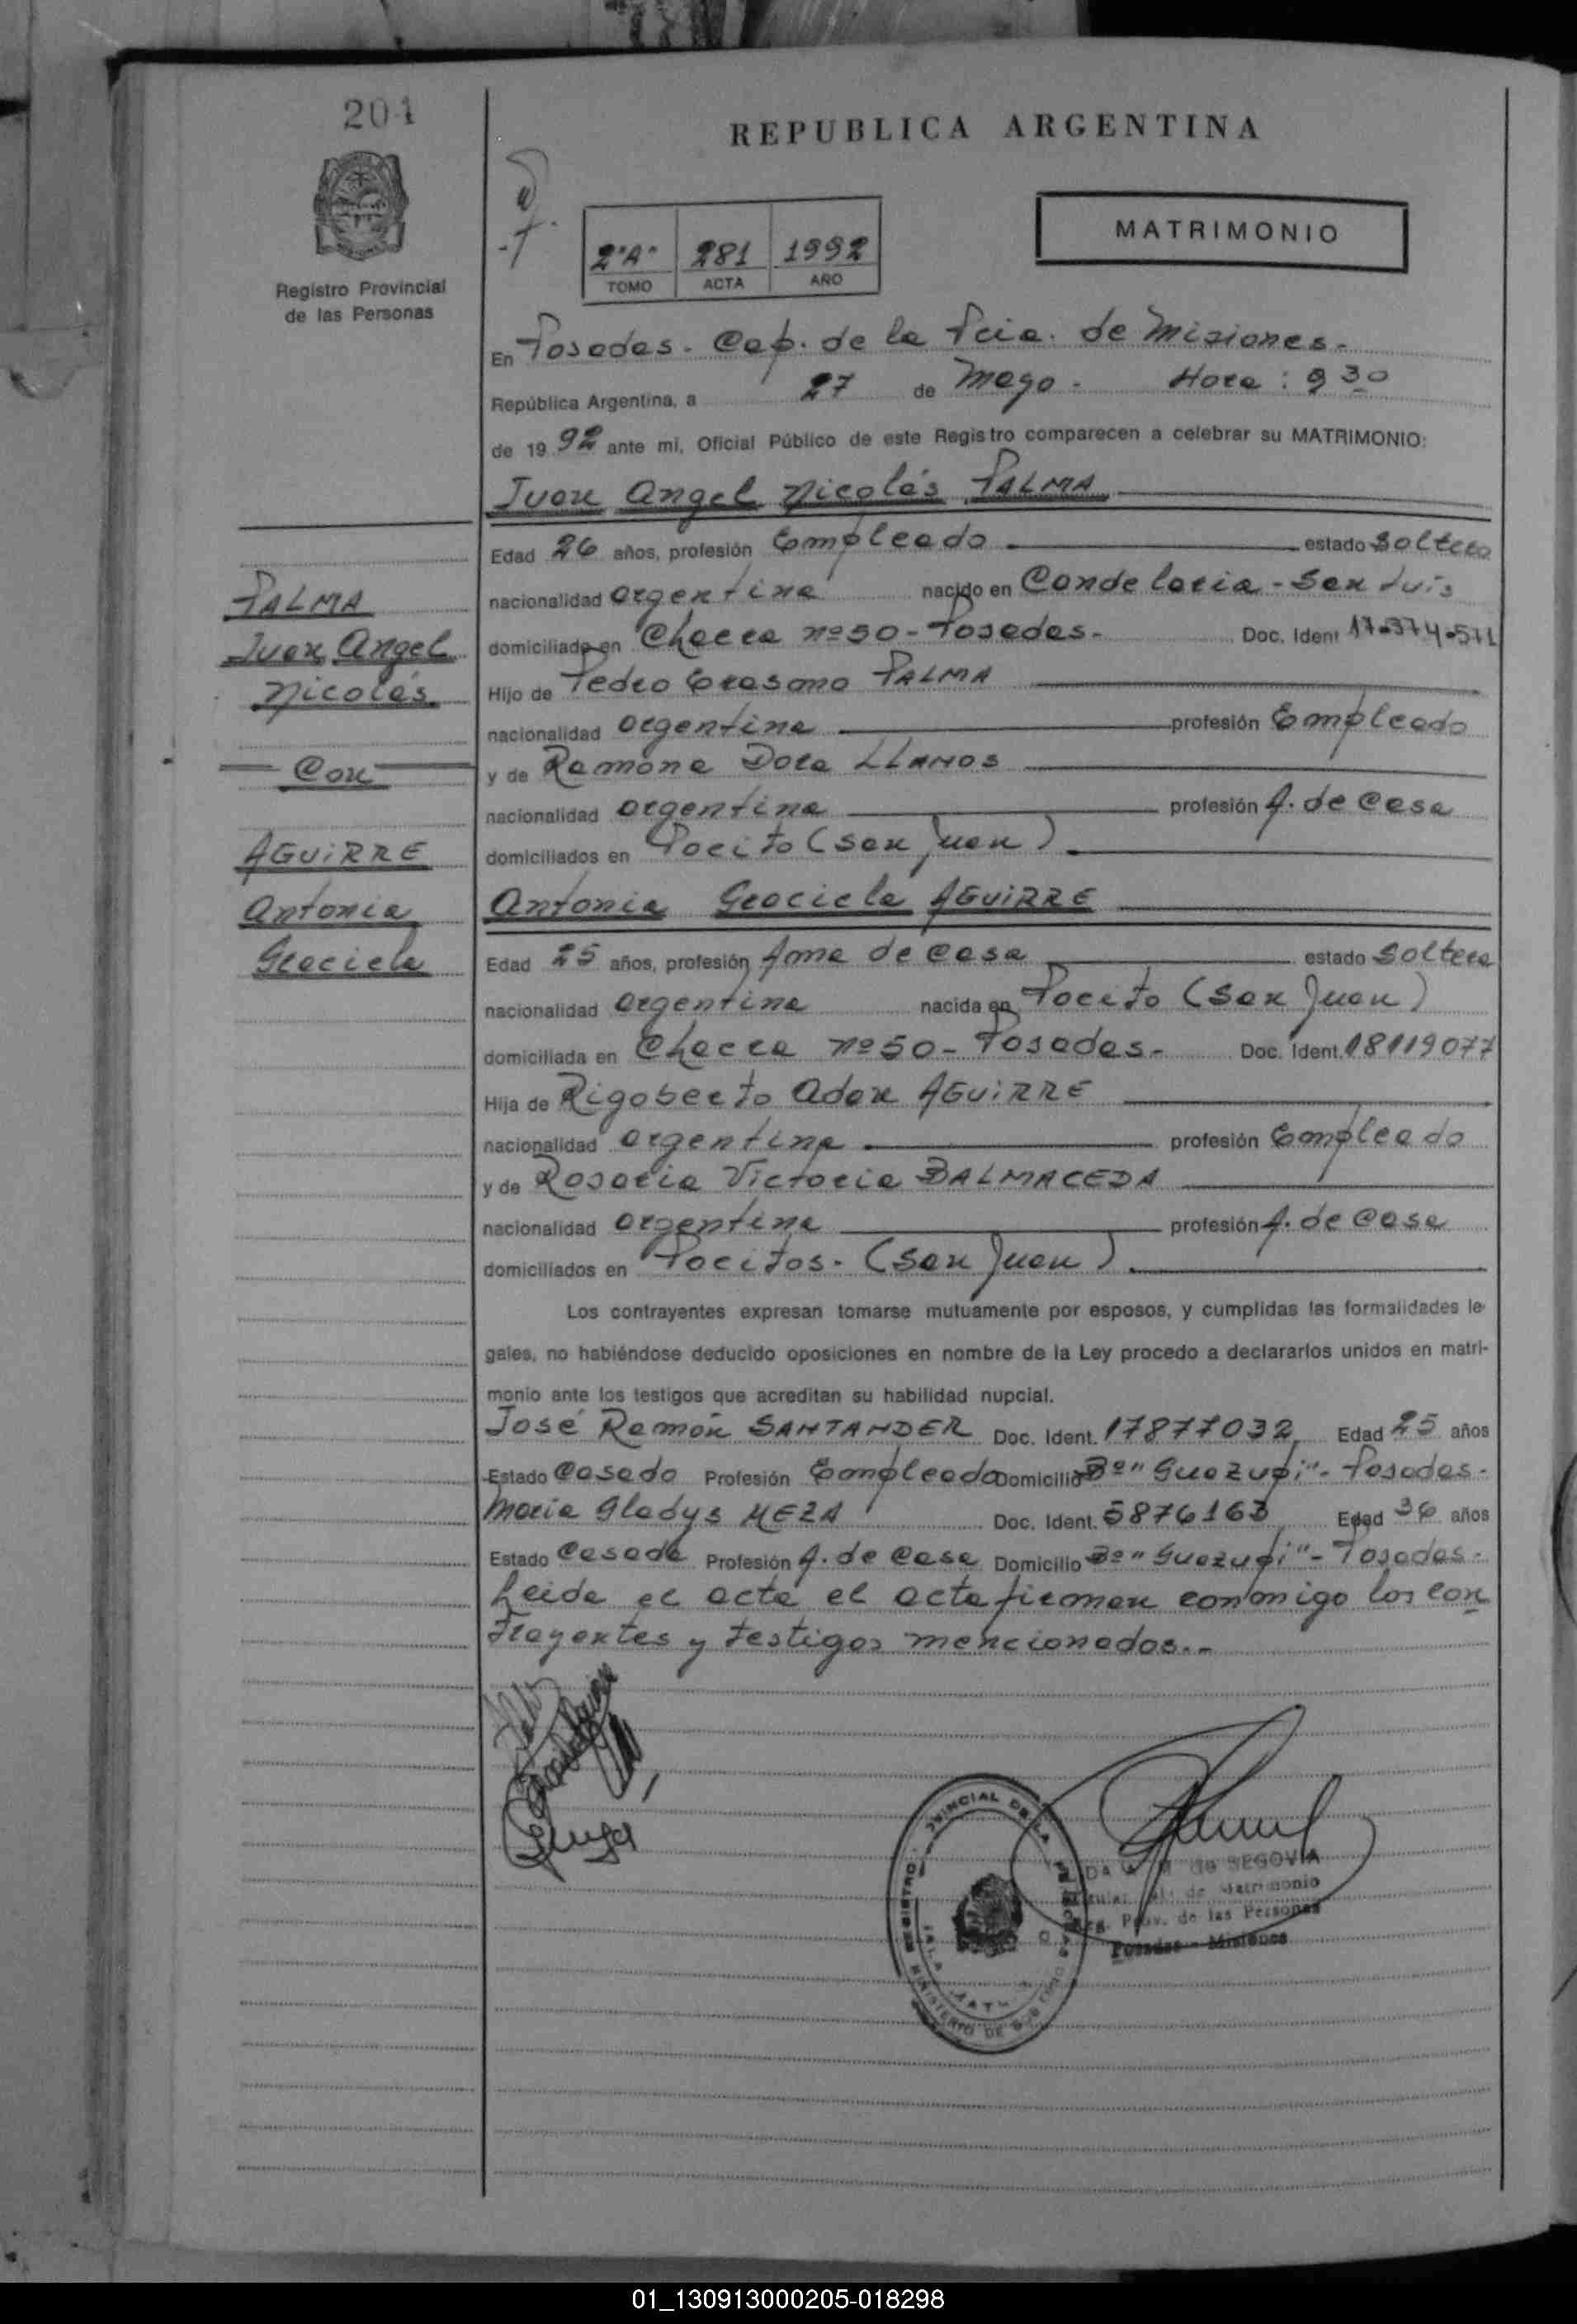 204
REPUBLICA ARGENTINA
MATRIMONIO
2"A" 281 1992
TOMO ACTA AÑO
Registro Provincial
de las Personas
En Posadas. Cap. de la Pcia. de Misiones.
República Argentina, a 27 de Mayo. Hora: 9 30
de 1992 ante mi, Oficial Público de este Registro comparecen a celebrar su MATRIMONIO:
Juan Angel Nicolás PALMA
Edad 26 años, profesión Empleado estado Soltero
nacionalidad argentina nacido en Candelaria - San Luis
domiciliado en Chacra nº 50 - Posadas. Doc. Ident 17.374.571
Hijo de Pedro Erasmo PALMA
nacionalidad argentina profesión Empleado
y de Ramona Dora LLANOS
nacionalidad argentina profesión A. de Casa
domiciliados en Pocito (San Juan)
Antonia Graciela AGUIRRE
Edad 25 años, profesión Ama de Casa estado Soltera
nacionalidad argentina nacida en Pocito (San Juan)
domiciliada en Chacra nº 50 - Posadas. Doc. Ident. 18119077
Hija de Rigoberto Adan AGUIRRE
nacionalidad argentina profesión Empleado
y de Rosaria Victoria BALMACEDA
nacionalidad argentina profesión A. de Casa
domiciliados en Pocitos. (San Juan)
PALMA
Juan Angel
Nicolás
Con
AGUIRRE
Antonia
Graciela
Los contrayentes expresan tomarse mutuamente por esposos, y cumplidas las formalidades le-
gales, no habiéndose deducido oposiciones en nombre de la Ley procedo a declararlos unidos en matri-
monio ante los testigos que acreditan su habilidad nupcial.
José Ramón SANTANDER Doc. Ident. 17877032 Edad 25 años
Estado Casado Profesión Empleado Domicilio Bº "Guazupi" - Posadas.
Maria Gladys MEZA Doc. Ident. 5876163 Edad 36 años
Estado Casada Profesión A. de Casa Domicilio Bº "Guazupi" - Posadas.
Leida el acta el acta firman conmigo los con
trayentes y testigos mencionados..
de SEGOVIA
de Matrimonio
Prov. de las Personas
Posadas - Misiones
01_130913000205-018298